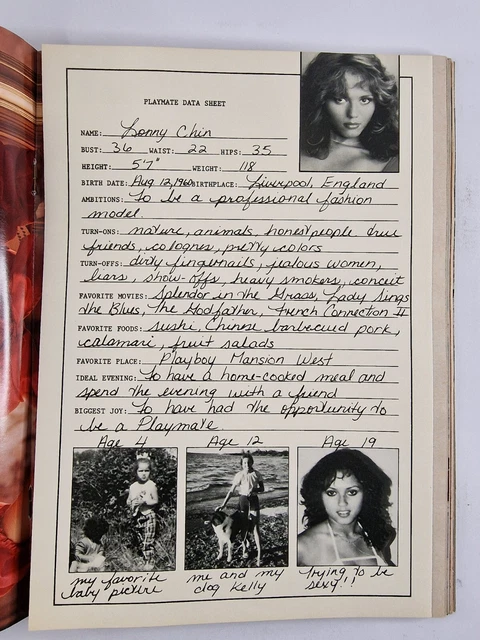 PLAYMATE DATA SHEET
NAME: Lonny Chin
BUST: 36 WAIST: 22 HIPS: 35
HEIGHT: 5'7" WEIGHT: 118
BIRTH DATE: Aug 12, 1960 BIRTHPLACE: Liverpool, England
AMBITIONS: To be a professional fashion
model.
TURN-ONS: nature, animals, honest people true
friends, colognes, pretty colors
TURN-OFFS: dirty fingernails, jealous women,
liars, show-offs, heavy smokers, conceit
FAVORITE MOVIES: Splendor in the Grass, Lady Sings
the Blues, The Godfather, French Connection II
FAVORITE FOODS: sushi, Chinese barbecued pork,
calamari, fruit salads
FAVORITE PLACE: Playboy Mansion West
IDEAL EVENING: To have a home-cooked meal and
spend the evening with a friend
BIGGEST JOY: To have had the opportunity to
be a Playmate
Age 4 Age 12 Age 19
my favorite me and my trying to be
baby picture dog Kelly sexy!!